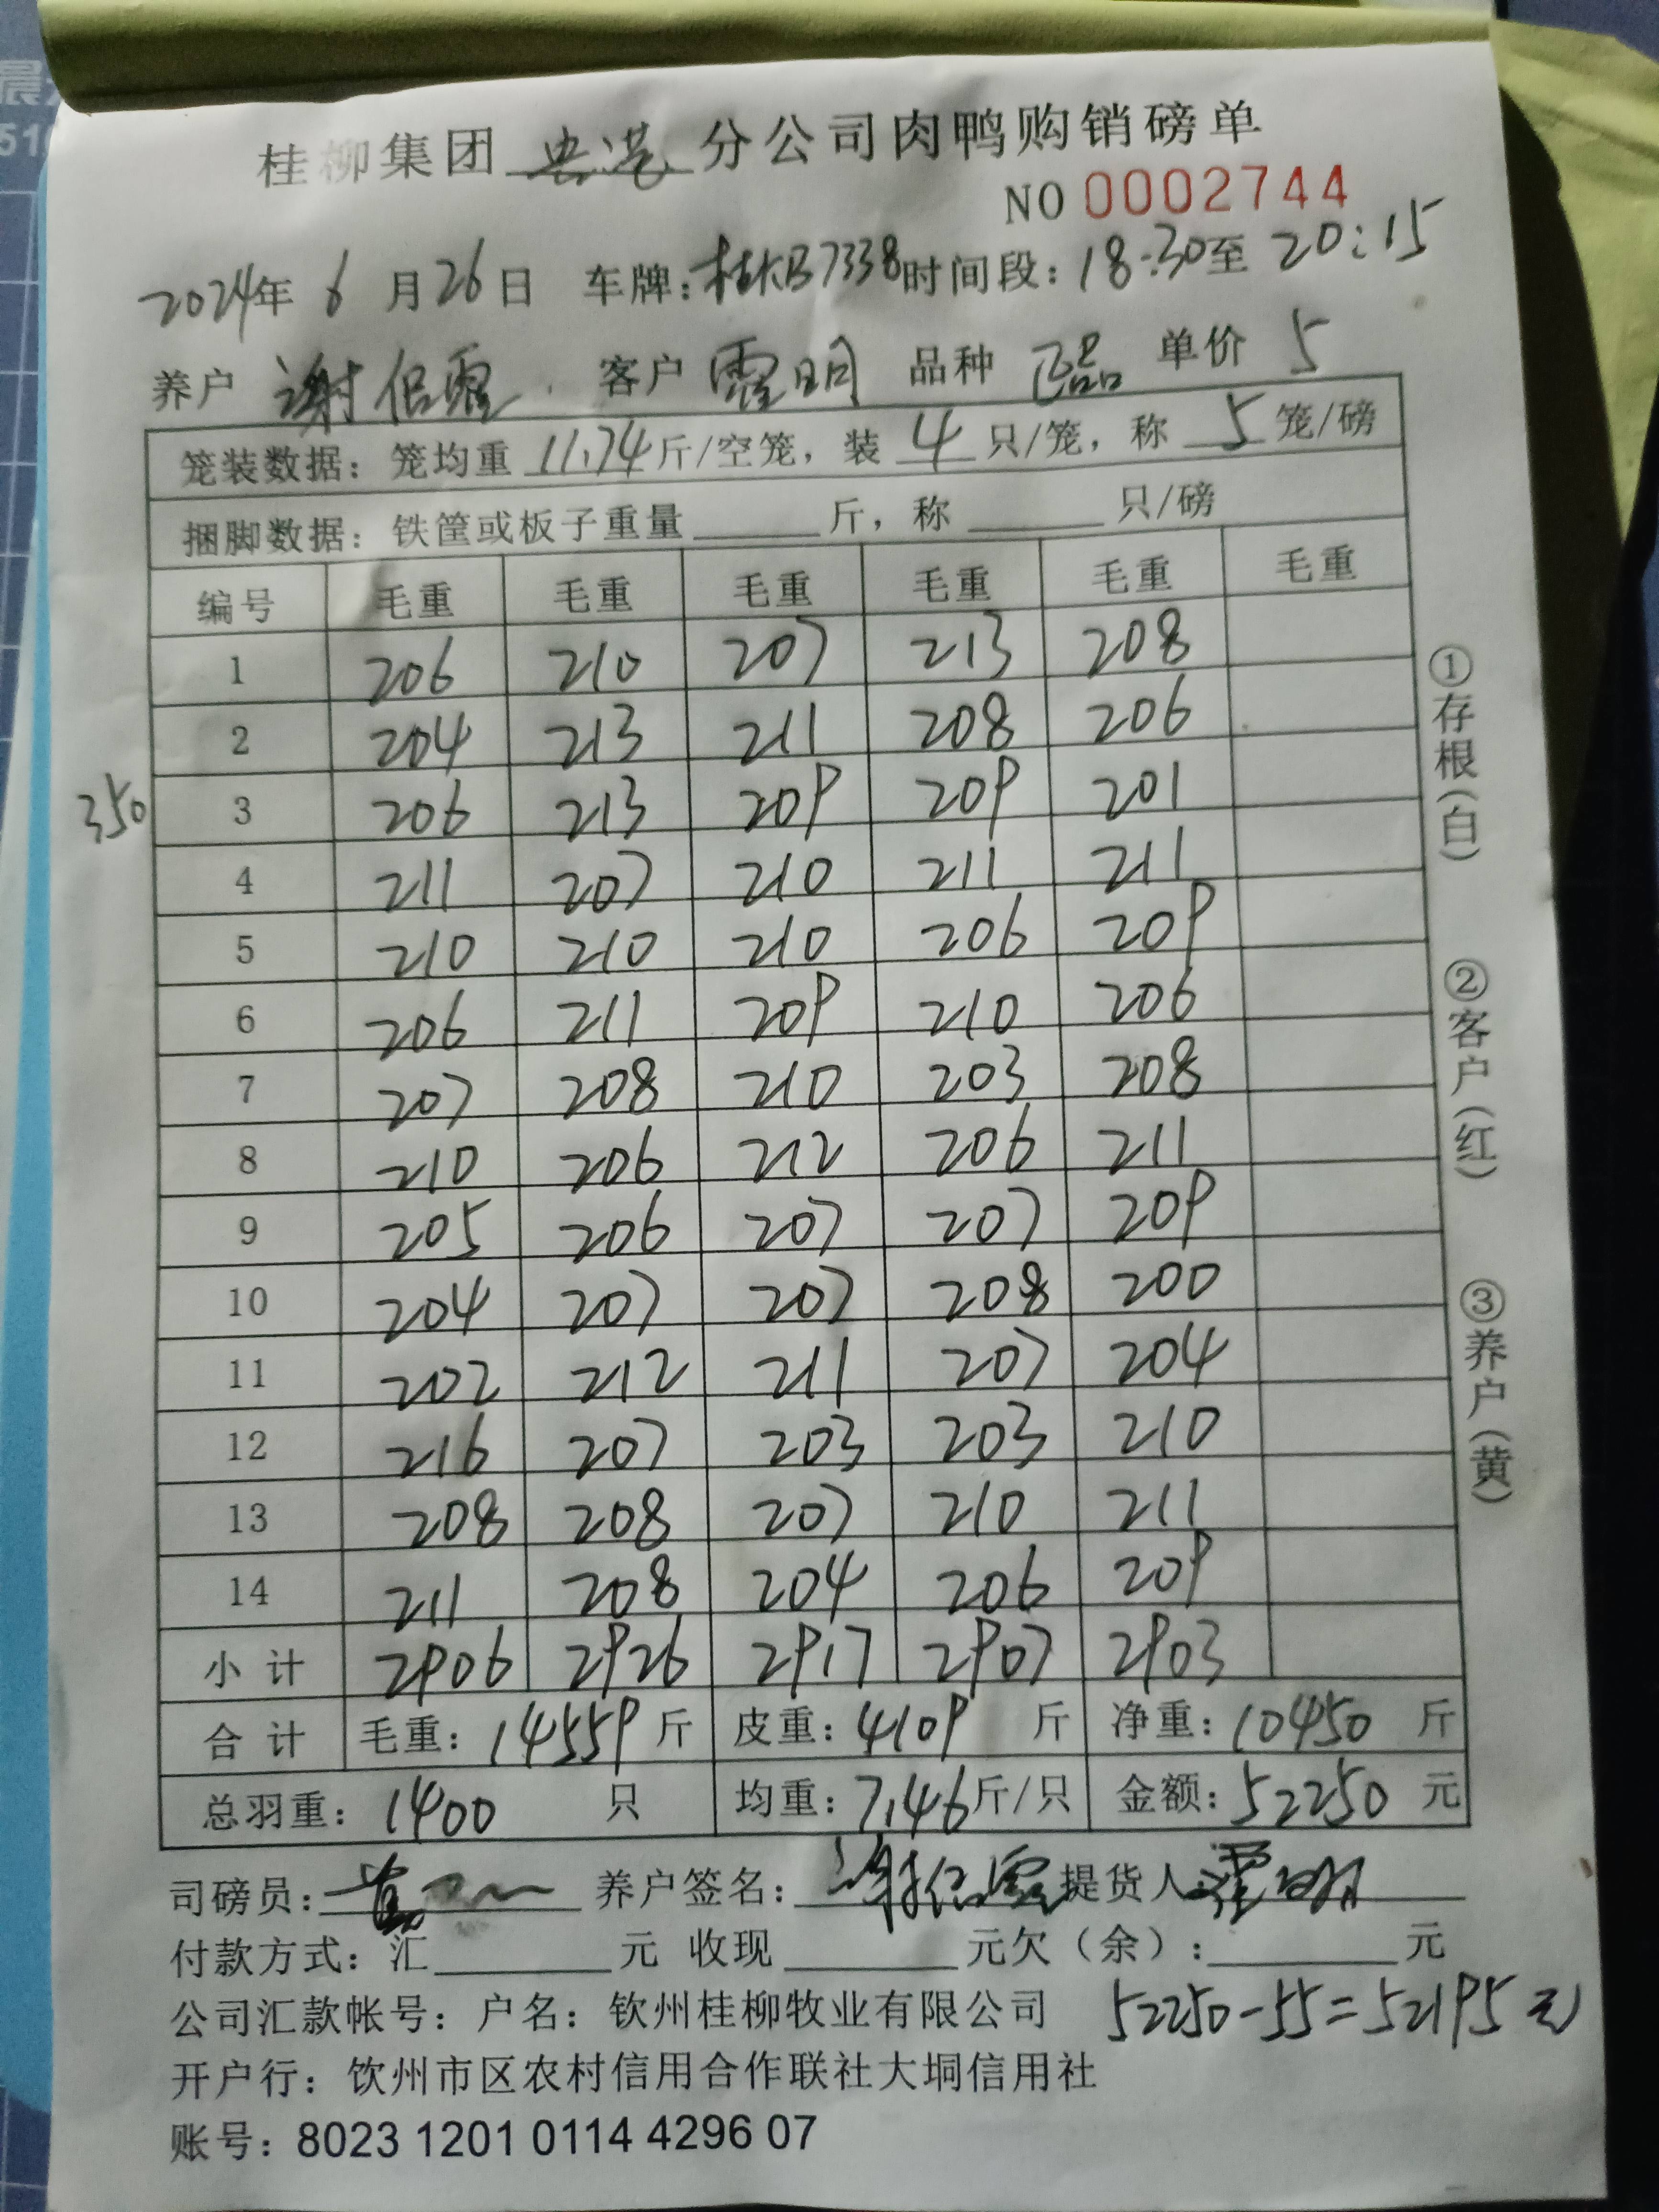 桂柳集团 贵港 分公司肉鸭购销磅单
NO 0002744
2024年 6 月 26 日 车牌: 桂KB7338 时间段: 18:30 至 20:15
养户 谢保霞 客户 霞明 品种 单价 5
笼装数据: 笼均重 11.74 斤/空笼, 装 4 只/笼, 称 5 笼/磅
捆脚数据: 铁筐或板子重量 斤, 称 只/磅
编号 毛重 毛重 毛重 毛重 毛重 毛重
1 206 210 207 213 208
2 204 213 211 208 206
350 3 206 213 209 209 201
4 211 207 210 211 211
5 210 210 210 206 209
6 206 211 209 210 206
7 207 208 210 203 208
8 210 206 212 206 211
9 205 206 207 207 209
10 204 207 207 208 200
11 202 212 211 207 204
12 216 207 203 203 210
13 208 208 207 210 211
14 211 208 204 206 209
小计 2906 2926 2917 2907 2903
合计 毛重: 14559 斤 皮重: 4109 斤 净重: 10450 斤
总羽重: 1400 只 均重: 7.46 斤/只 金额: 52250 元
司磅员: 养户签名: 谢保霞 提货人
付款方式: 汇 元 收现 元欠(余): 元
公司汇款帐号: 户名: 钦州桂柳牧业有限公司 52250-55=52195元
开户行: 钦州市区农村信用合作联社大垌信用社
账号: 8023 1201 0114 4296 07
①存根(白)
②客户(红)
③养户(黄)